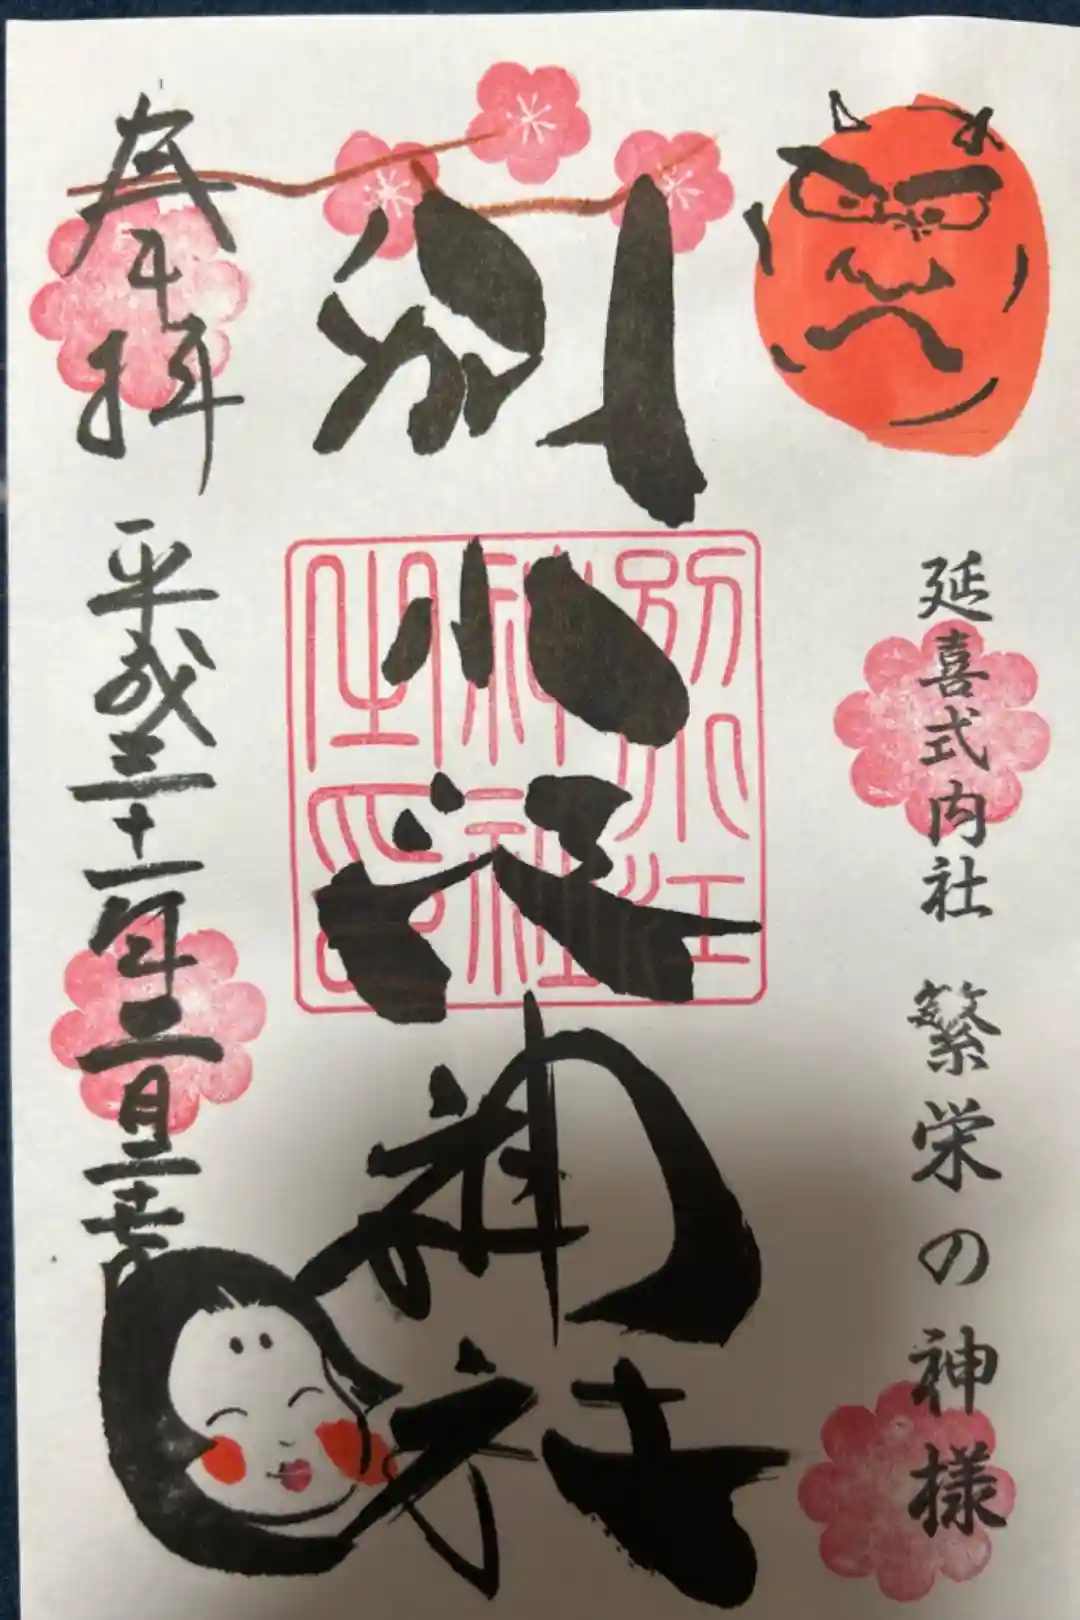 延喜式内社 繁栄の神様
別小江神社
別小江
神社
之印
奉拝 平成三十一年二月二十